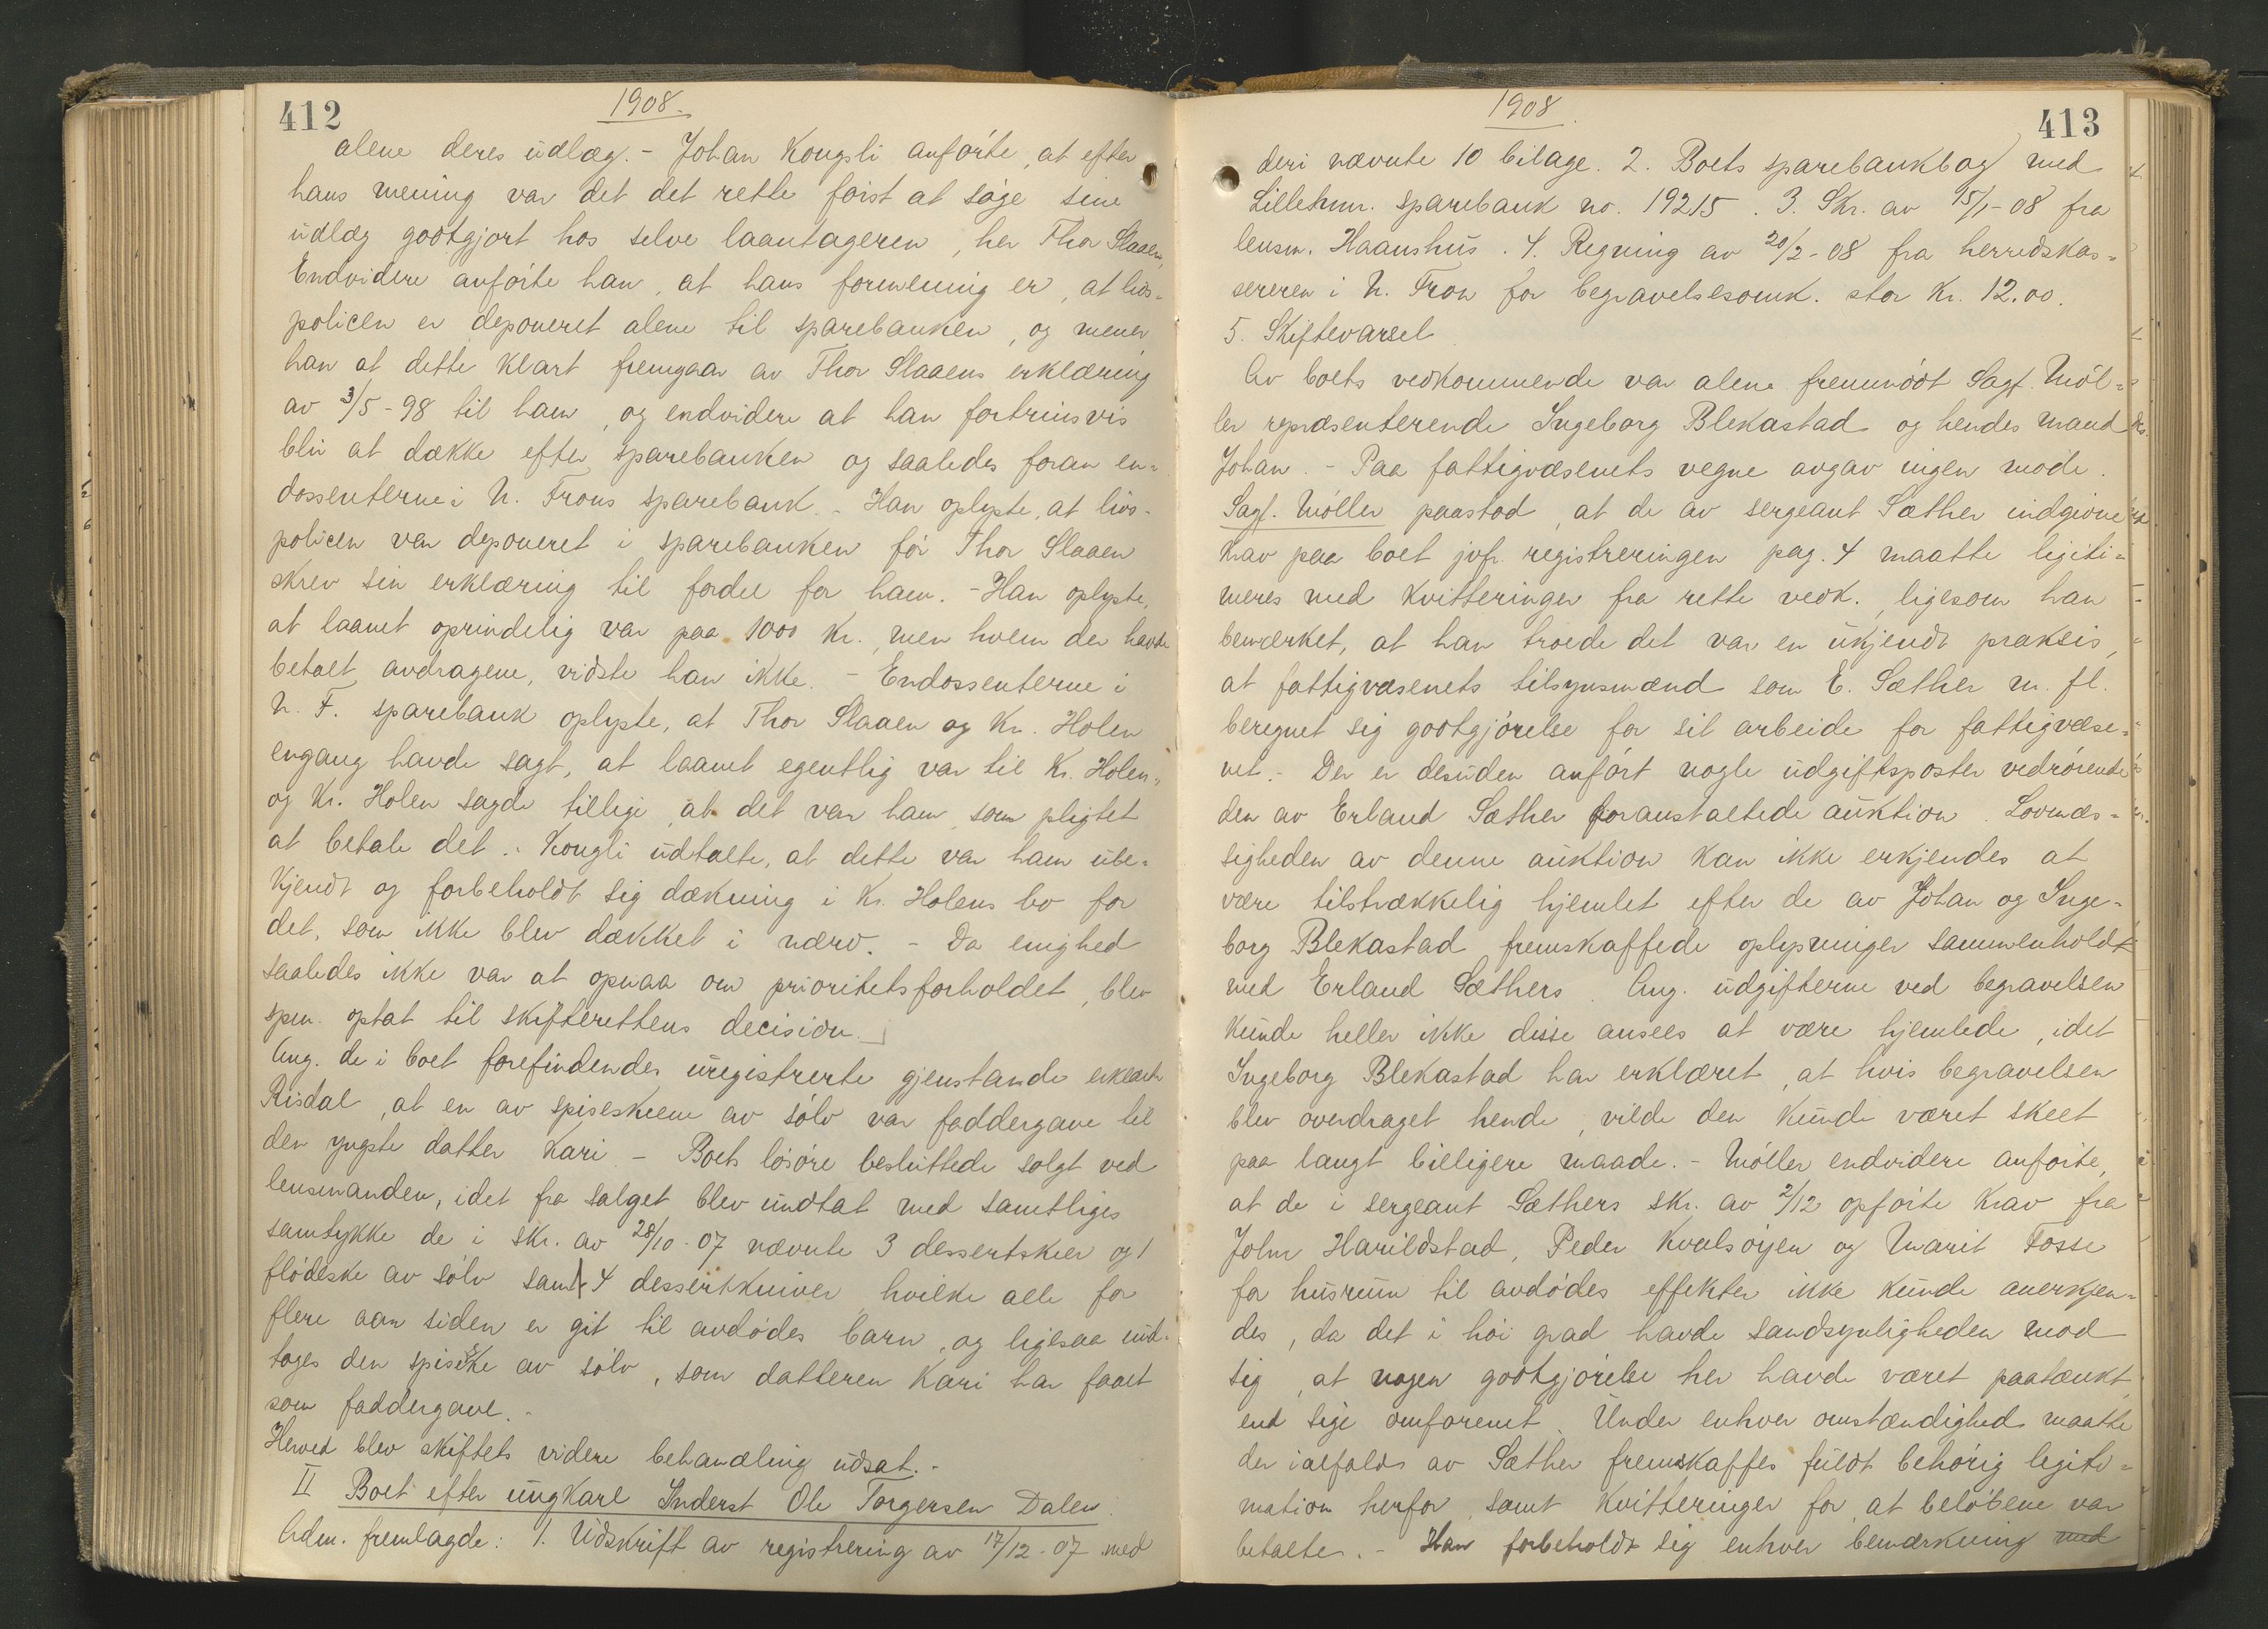 412
1908.
alene deres udlæg. - Johan Kongsli anførte, at efter
hans mening var det det rette først at søge sine
udlæg godtgjort hos selve laantageren, her Thor Slaaen,
Endvidere anførte han, at hans formening er, at livs-
policen er deponeret alene til sparebanken, og mener
han at dette klart fremgaar av Thor Slaaens erklæring
av 3/5-98 til ham, og endvidere at han fortrinsvis
blir at dække efter sparebanken og saaledes foran en-
dossenterne i N. Frons sparebank. - Han oplyste, at livs-
policen var deponeret i sparebanken før Thor Slaaen
skrev sin erklæring til fordel for ham. - Han oplyste,
at laanet oprindelig var paa 1000 kr., men hvem der havde
betalt avdragene, vidste han ikke. - Endossenterne i
N. F. sparebank oplyste, at Thor Slaaen og Kr. Holen
engang havde sagt, at laanet egentlig var til Kr. Holen,
og Kr. Holen sagde tillige at det var ham som pligtet
at betale det. - Kongli udtalte, at dette var ham ube-
kjendt og forbeholdt sig dækning i Kr. Holens bo for
det, som ikke blev dækket i nærv. - Da enighed
saaledes ikke var at opnaa om prioritetsforholdet, blev
spm. optat til skifterettens decision.
Ang. de i boet forefindendes uregistrerte gjenstande erklærte
Risdal, at en av spiseskeene av sølv var faddergave til
den yngste datter Kari - Boets løsøre besluttede solgt ved
lensmanden, idet fra salget blev undtat med samtliges
samtykke de i skr. av 28/10-07 nævnte 3 dessertskeer og 1
flødeske av sølv samt 4 dessertkniver, hvilke alle for
flere aar siden er git til avdødes barn, og ligesaa und-
tages den spiseske av sølv, som datteren Kari har faaet
som faddergave. -
Hermed blev skiftets videre behandling udsat. -
II Boet efter ungkarl Inderst Ole Torgersen Dalen.
Adm. fremlagde: 1. Udskrift av registrering av 17/12-07 med
1908.
413
deri nævnte 10 bilage. 2. Boets sparebankbog med
Lillehmr. sparebank no. 19215. 3. Skr. av 15/1-08 fra
lensm. Haanshus. 4. Regning av 20/2-08 fra herredskas-
sereren i N. Fron for begravelsesomk. stor kr. 12.00.
5. Skiftevarsel
Av boets vedkommende var alene fremmødt Sagf. Møl-
ler repræsenterende Ingeborg Blekastad og hendes mand
Johan. - Paa fattigvæsenets vegne avgav ingen møde.
Sagf. Møller paastod, at de av sergeant Sæther indgivne
krav paa boet jvfr. registreringen pag. 4 maatte legiti-
meres med kvitteringer fra rette vedk., ligesom han
bemærket, at han troede det var en ukjendt praksis,
at fattigvæsenets tilsynsmænd som E. Sæther m. fl.
beregnet sig godtgjørelse for sit arbeide for fattigvæse-
net. - Der er desuden anført nogle udgiftsposter vedrørende
den av Erland Sæther foranstaltede auktion. Lovmæs-
sigheden av denne auktion kan ikke erkjendes at
være tilstrækkelig hjemlet efter de av Johan og Inge-
borg Blekastad fremskaffede oplysninger sammenholdt
med Erland Sæthers. Ang. udgifterne ved begravelsen
kunde heller ikke disse ansees at være hjemlede, idet
Ingeborg Blekastad har erklæret, at hvis begravelsen
blev overdraget hende, vilde den kunde været skeet
paa langt billigere maade. - Møller endvidere anførte,
at de i sergeant Sæthers skr. av 2/12 opførte krav fra
John Harildstad, Peder Kvalsøyen og Marit Fosse
for husrum til avdødes effekter ikke kunde anerkjen-
des, da det i høi grad havde sandsynligheden mod
sig, at nogen godtgjørelse her havde været paatænkt
end sige omforenet. Under enhver omstændighed maatte
der ialfald av Sæther fremskaffes fuldt behørig legiti-
mation herfor samt kvitteringer for at beløbene var
betalte. - Han forbeholdt sig enhver bemærkning med